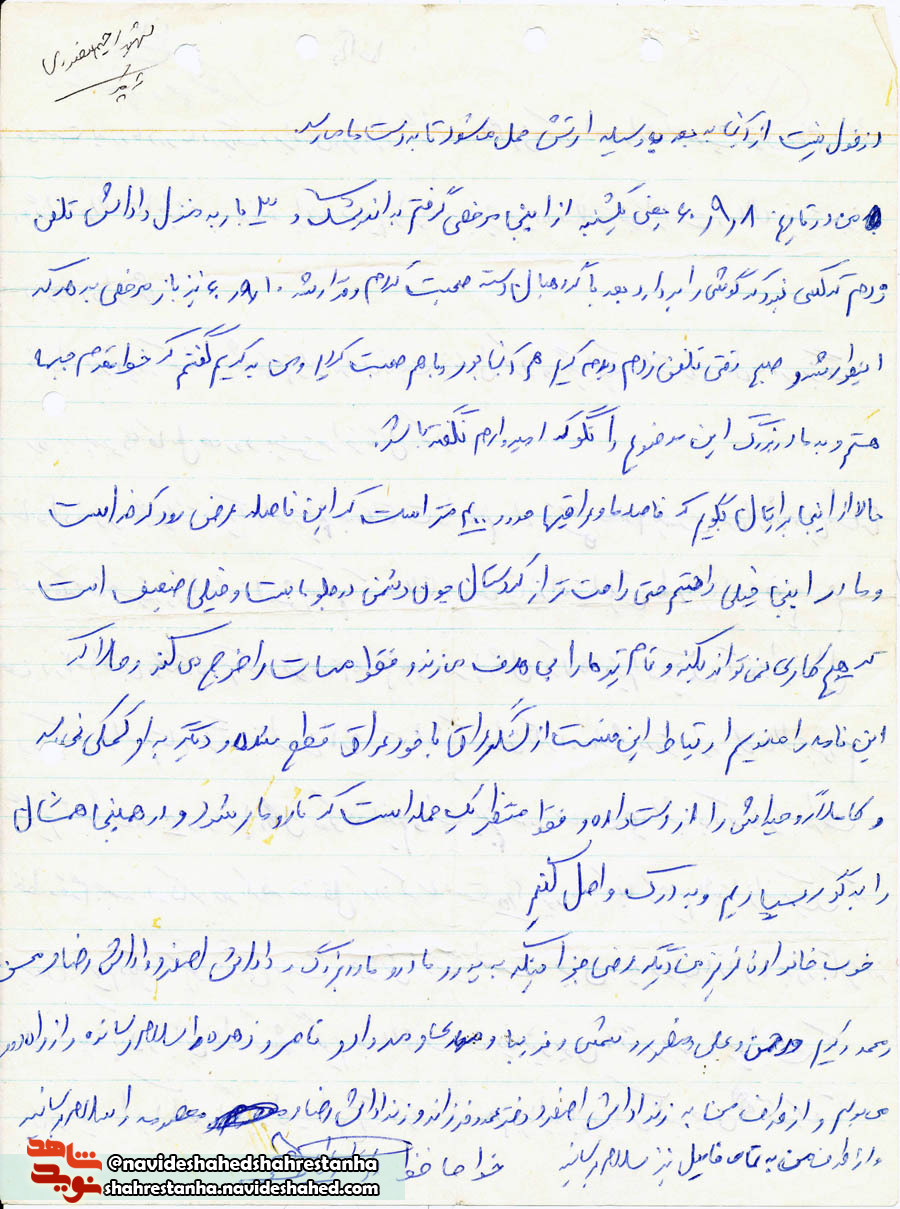 شهید رحیم صفدری
دزفول نیست از آنجا به وسیله ارتش حمل می‌شود تا به دست ما می‌رسد.
من در تاریخ ۶۰٫۹٫۸ یعنی یکشنبه از اینجا مرخصی گرفتم به اندیمشک و ۳ بار به منزل داداش تلفن
زدم که کسی نبود که گوشی را بردارد بعد با صحبت کردم و قرار شد ۶۰٫۹٫۱۰ نیز باز مرخصی بدهد که
اینطور شد و صبح وقتی تلفن زدم دیدم کریم هم آنجا بود و با هم صحبت کردیم و من به کریم گفتم که خط مقدم جبهه
هستم و به مادربزرگ این موضوع را نگو که امیدوارم نگفته باشد.
حالا از اینجا برایتان بگویم که فاصله ما و عراقیها حدود ۴۰۰ متر است که این فاصله عرض رود کرخه است
و ما در اینجا خیلی راحتیم حتی راحت تر از کردستان چون دشمن در جلو ماست و خیلی ضعیف است
که هیچ کاری نمی تواند بکند و تمام تیرها را بی هدف می‌زند و فقط مهمات را خرج می کند و حالا که
این نامه را می‌نویسم ارتباط این قسمت از لشگر عراق با خود عراق قطع شده و دیگر به او کمکی نمی‌رسد
و کاملاً روحیه‌اش را از دست داده و فقط منتظر یک حمله است که تار و مار شود و در همینجا همشان
را به گور بسپاریم و به درک واصل کنیم
خوب خانواده عزیز من دیگر عرضی جز اینکه به پدر و مادر و مادربزرگ و داداش اصغر و داداش رضا و محسن
و محمد و کریم و حسن و علی و منصور و شمسی و فریبا و و مهرداد و ناصر و زهره را سلام رسانده و از راه دور
می بوسم و از طرف من به زن داداش اصغر و دختر عمو فرزانه و زن داداش رضا و معصومه را سلام برسانید
و از طرف من به تمامی فامیل نیز سلام برسانید خداحافظ
نوید شاهد
@navideshahedshahrestanha
shahrestanha.navideshahed.com